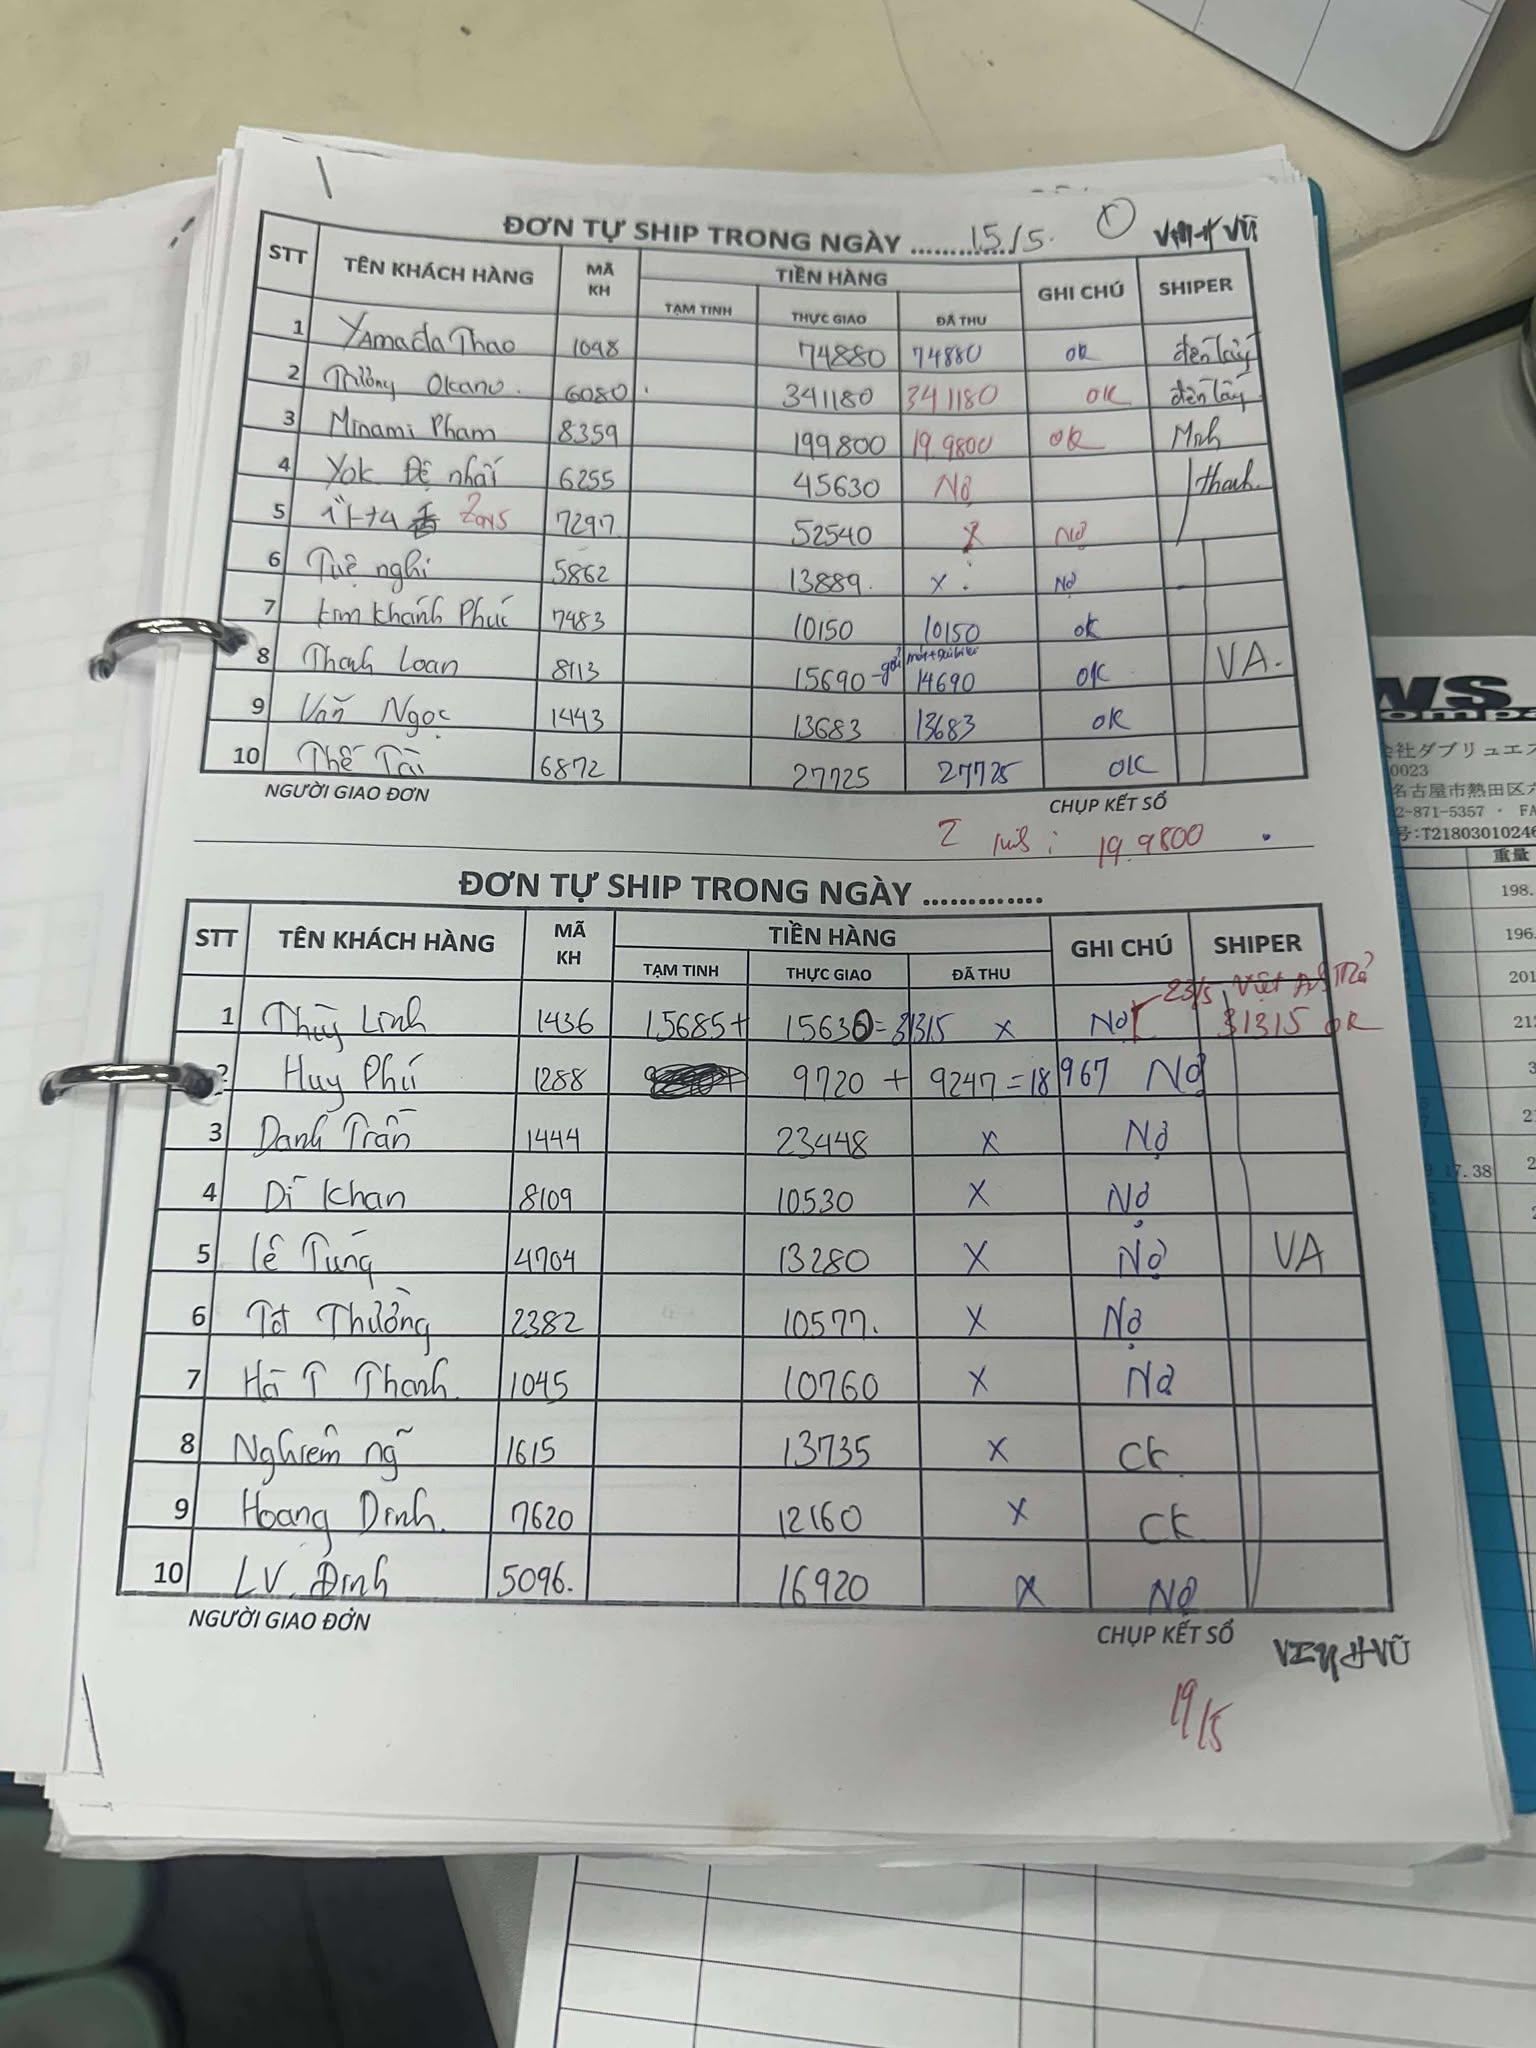 ĐƠN TỰ SHIP TRONG NGÀY .............. 15/5. 1 VŨ
STT TÊN KHÁCH HÀNG MÃ KH TIỀN HÀNG GHI CHÚ SHIPER
TẠM TINH THỰC GIAO ĐÃ THU
1 YAmada Thao 1048 74880 74880 ok đến lấy
2 Thưởng Okano. 6080 341180 341180 OK đến lấy
3 Minami Pham 8359 199800 19.9800 OK Mnh
4 Yok Đệ nhất 6255 45630 Nợ thanh.
5 7297 52540 X Nợ
6 Tuệ nghi 5862 13889. x Nợ
7 kim khánh Phúc 7483 10150 10150 ok
8 Thanh Loan 8113 15690 - gửi 14690 OK VA.
9 Văn Ngọc 1443 13683 13683 OK
10 Thế Tài 6872 27725 27725 OK
NGƯỜI GIAO ĐƠN CHỤP KẾT SỔ
19.9800
ĐƠN TỰ SHIP TRONG NGÀY .............
STT TÊN KHÁCH HÀNG MÃ KH TIỀN HÀNG GHI CHÚ SHIPER
TẠM TINH THỰC GIAO ĐÃ THU
23/5 Việt Anh Trả
1 Thùy Linh 1436 15685 + 15630 = 31315 x Nợ 31315 OK
2 Huy Phú 1288 9720 + 9247 = 18967 Nợ
3 Danh Trần 1444 23448 x Nợ
4 Dĩ Khan 8109 10530 X Nợ
5 lê Tùng 4704 13280 X Nợ VA
6 Tot Thưởng 2382 10577. X Nợ
7 Hà T Thanh. 1045 10760 X Nợ
8 Nghiêm ng 1615 13735 X CK
9 Hoang Dinh. 7620 12160 X CK
10 LV. Đinh 5096. 16920 X Nợ
NGƯỜI GIAO ĐỚN CHỤP KẾT SỔ
VINH VŨ
19/5
WS
会社ダブリュエス
0023
名古屋市熱田区六
2-871-5357 · FA
号:T21803010246
重量
198.
196.
201
17.38